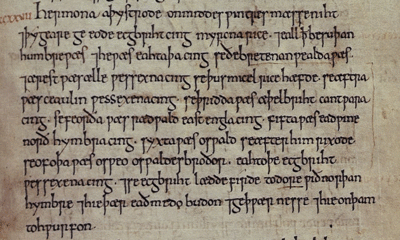 Her mona aþystrode onmiddes ƿintres mæsseniht
⁊þy geare ge eode ecgbriht cing myrcna rice. ⁊eall ꝥ besuþan
humbre ƿæs ⁊he ƿæs eahtaþa cing seðe bretenanƿealda ƿæs.
⁊ærest ƿæs ælle ƿessexna cing seþus micel rice hæfde. seæftra
ƿæs ceaulin ƿessexena cing. seþridda ƿæs æþelbriht cantƿara
cing. sefeorða ƿæs rædƿald east engla cing. fifta ƿæs eadƿine
norð hymbra cing. syxta ƿæs osƿald seæfter him rixode
seofoþa ƿæs osƿeo osƿaldes broðor. eahtoþe ecgbriht
ƿessexena cing. ⁊se ecgbriht lædde firde todore ƿið norþan
hymbre ⁊hie þær eadmedo budon ⁊geþƿær nesse ⁊hie onþam
tohƿurfon.